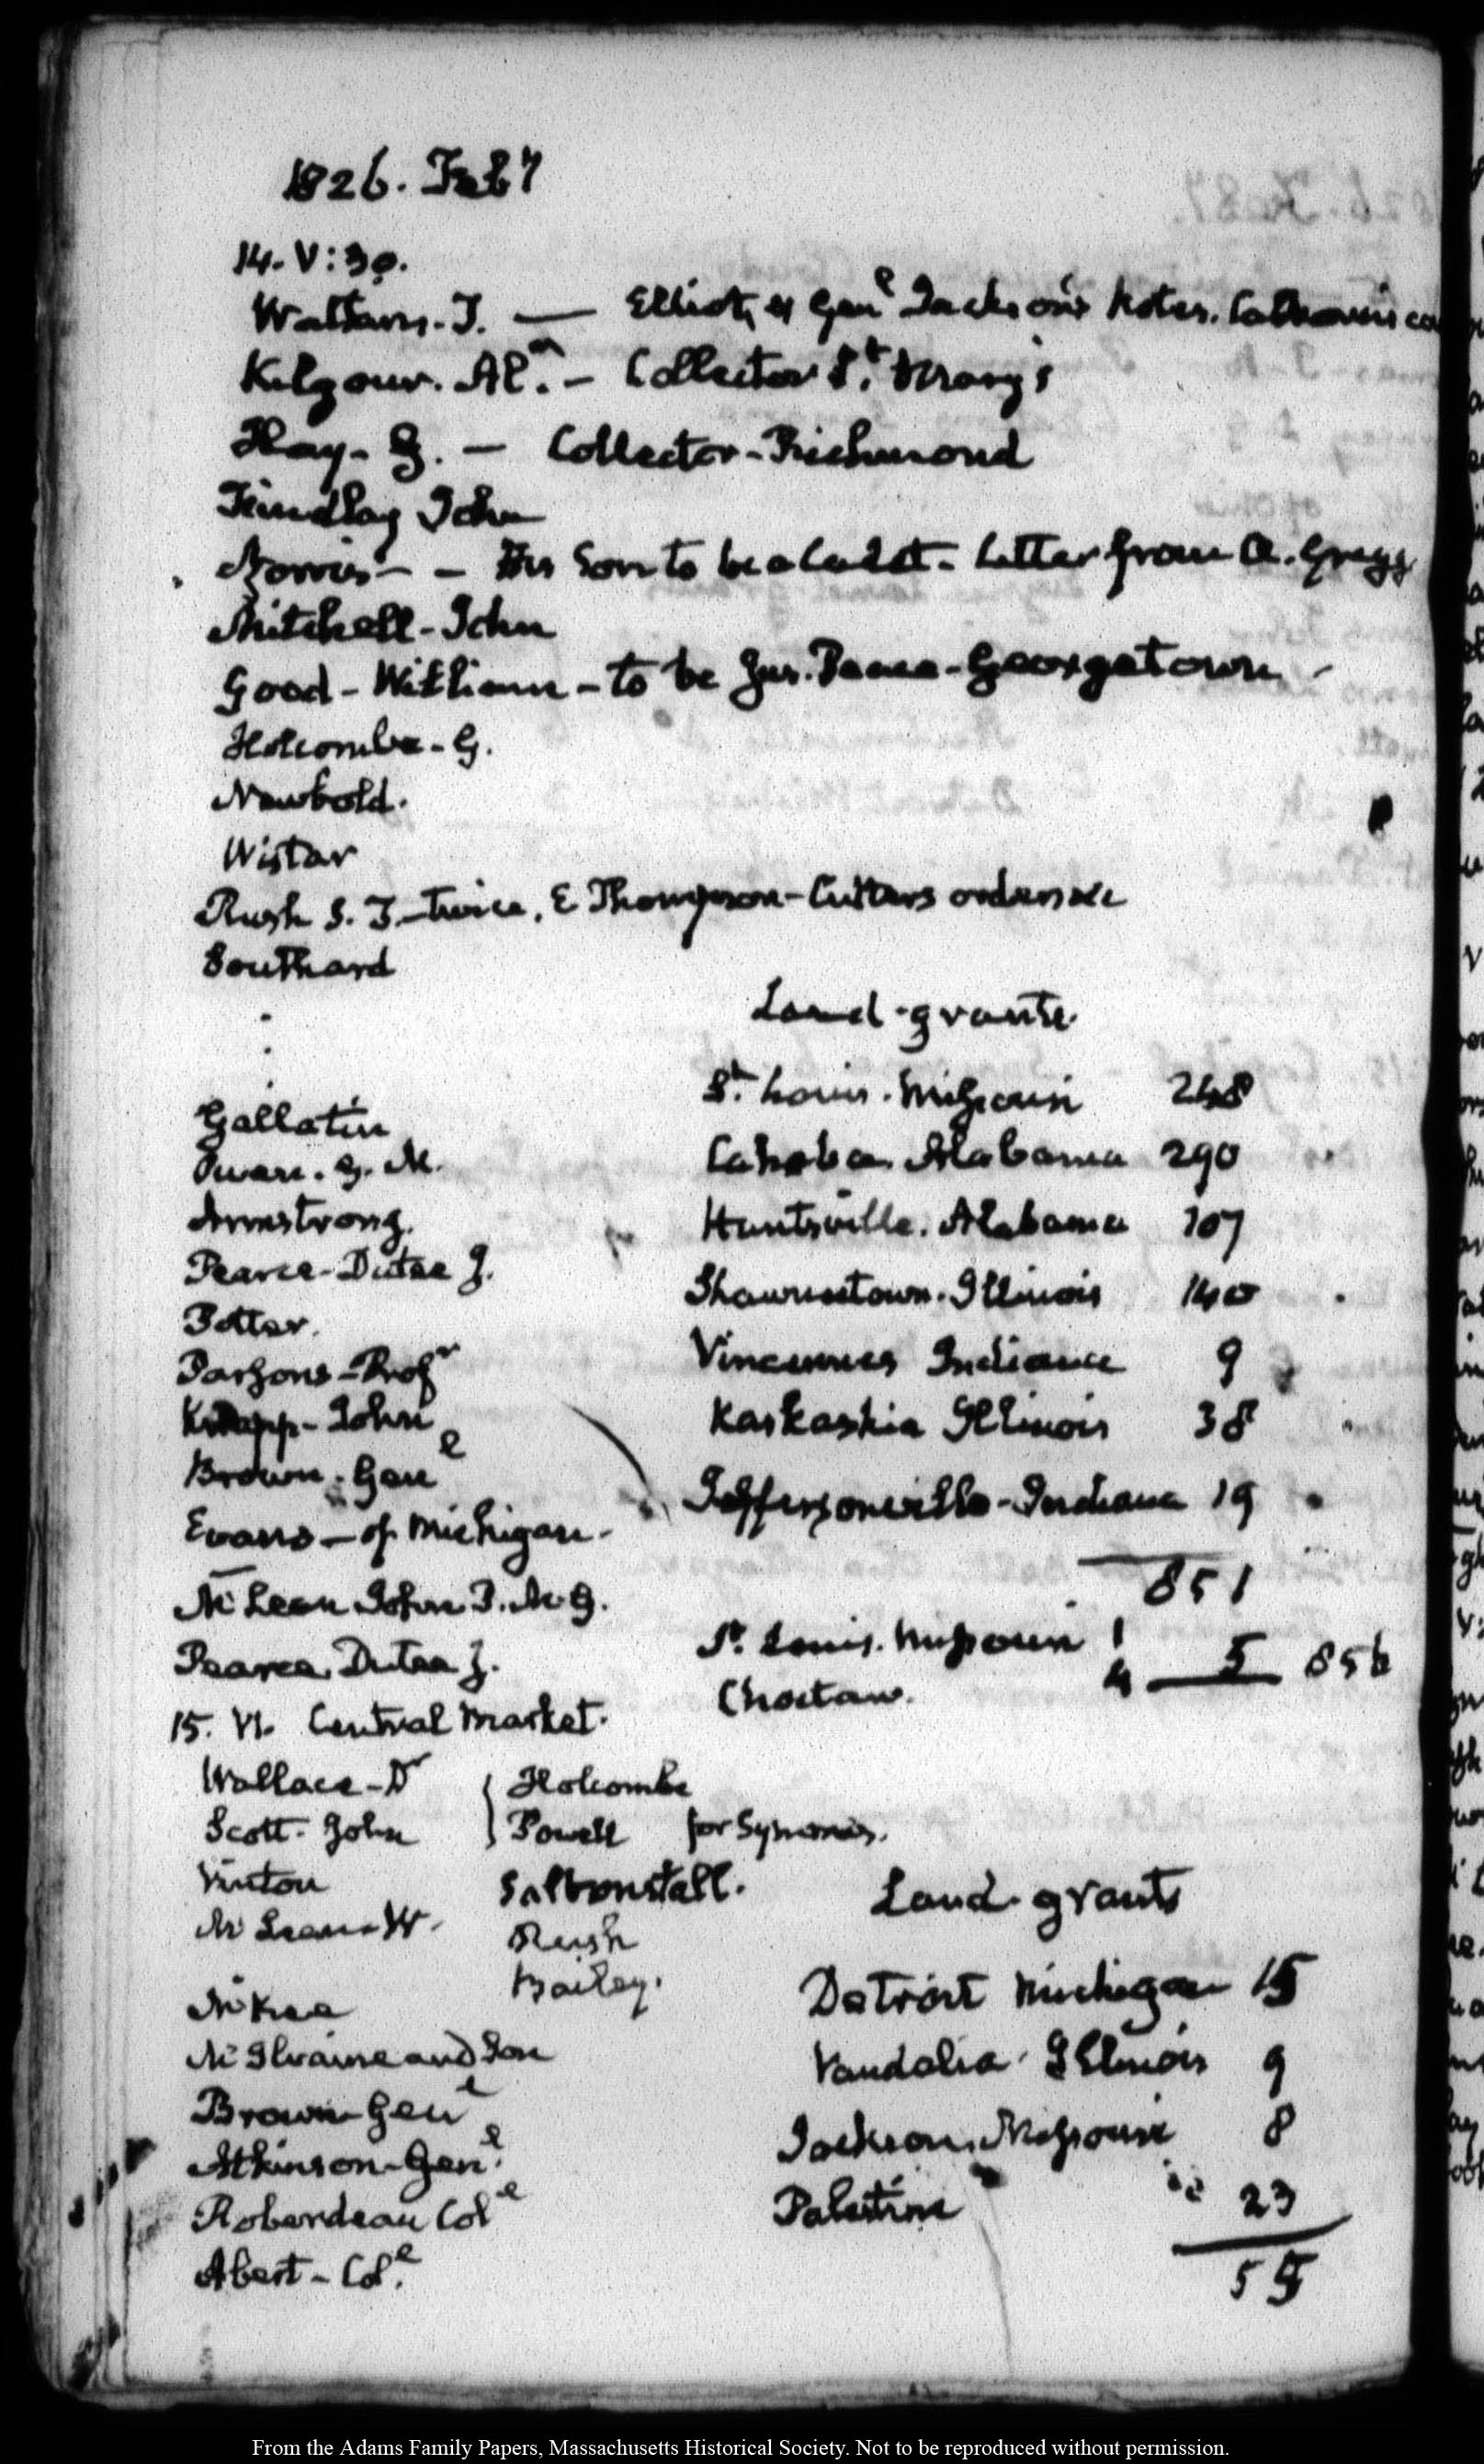 1826. Feby
14. V:30.
Watkins. T. — Elliot, & Genl Jackson's Notes.
Kilgour. Alr. — Collector St. Mary's
Hay. G. — Collector - Richmond
Findlay John
Norris — — His Son to be a Cadet. Letter from A. Gregg
Mitchell - John
Good - William - to be Jus. Peace - Georgetown
Holcombe - G.
Newbold.
Wistar
Rush S. F. twice. E Thompson - Cutters orders
Southard
Land-grants
Gallatin
Owen. G. M.
Armstrong.
Pearce - Dutee J.
Potter.
Parsons - Profr
Knapp - John
Brown. Genl
Evans - of Michigan.
McLean John P.M.G.
Pearce. Dutee J.
St. Louis. Missouri 248
Cahaba. Alabama 290
Huntsville. Alabama 107
Shawneetown. Illinois 140
Vincennes Indiana 9
Kaskaskia Illinois 38
Jeffersonville - Indiana 19
851
St. Louis. Missouri 1
Choctaw. 4 — 5 856
15. VI. Central Market.
Wallace - Dr
Scott. John
Vinton
McLean - W.
McKee
McIlvaine and Son
Brown Genl
Atkinson - Genl.
Roberdeau Coll
Abert - Coll.
Holcombe
Powell for Symmes.
Saltonstall.
Rush
Bailey.
Land-grants
Detroit Michigan 15
Vandalia. Illinois 9
Jackson. Missouri 8
Palestine 23
55
From the Adams Family Papers, Massachusetts Historical Society. Not to be reproduced without permission.